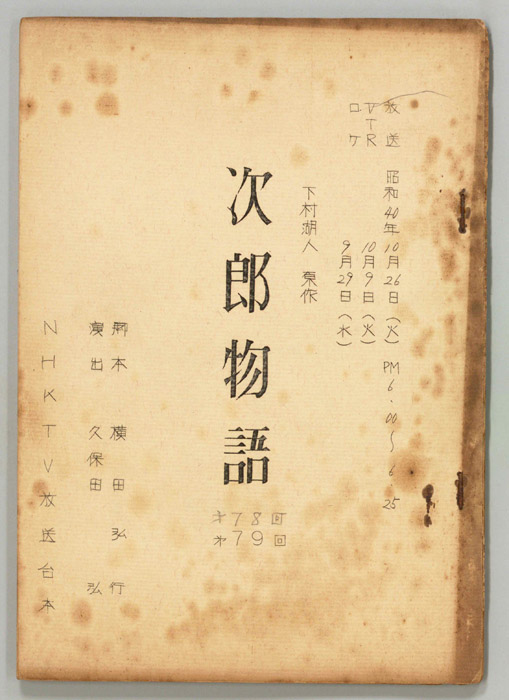 放送 昭和40年10月26日(火) PM6.00〜6.25
VTR 10月9日(火)
ロケ 9月29日(水)
下村湖人 原作
次郎物語
才78回
第79回
脚本 横田弘行
演出 久保田 弘
NHKTV放送台本